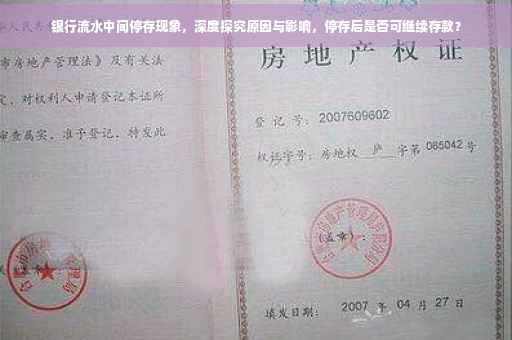 银行流水中间停存现象，深度探究原因与影响，停存后是否可继续存款？
华人民共和国
市房地产管理法》及有关规
定，对权利人申请登记本证所
审查属实，准予登记，特发此
房地产权证
登记号：2007609602
权证字号：房地权 庐 字第 085042 号
（盖章）：
填发日期：2007 年 04 月 27 日